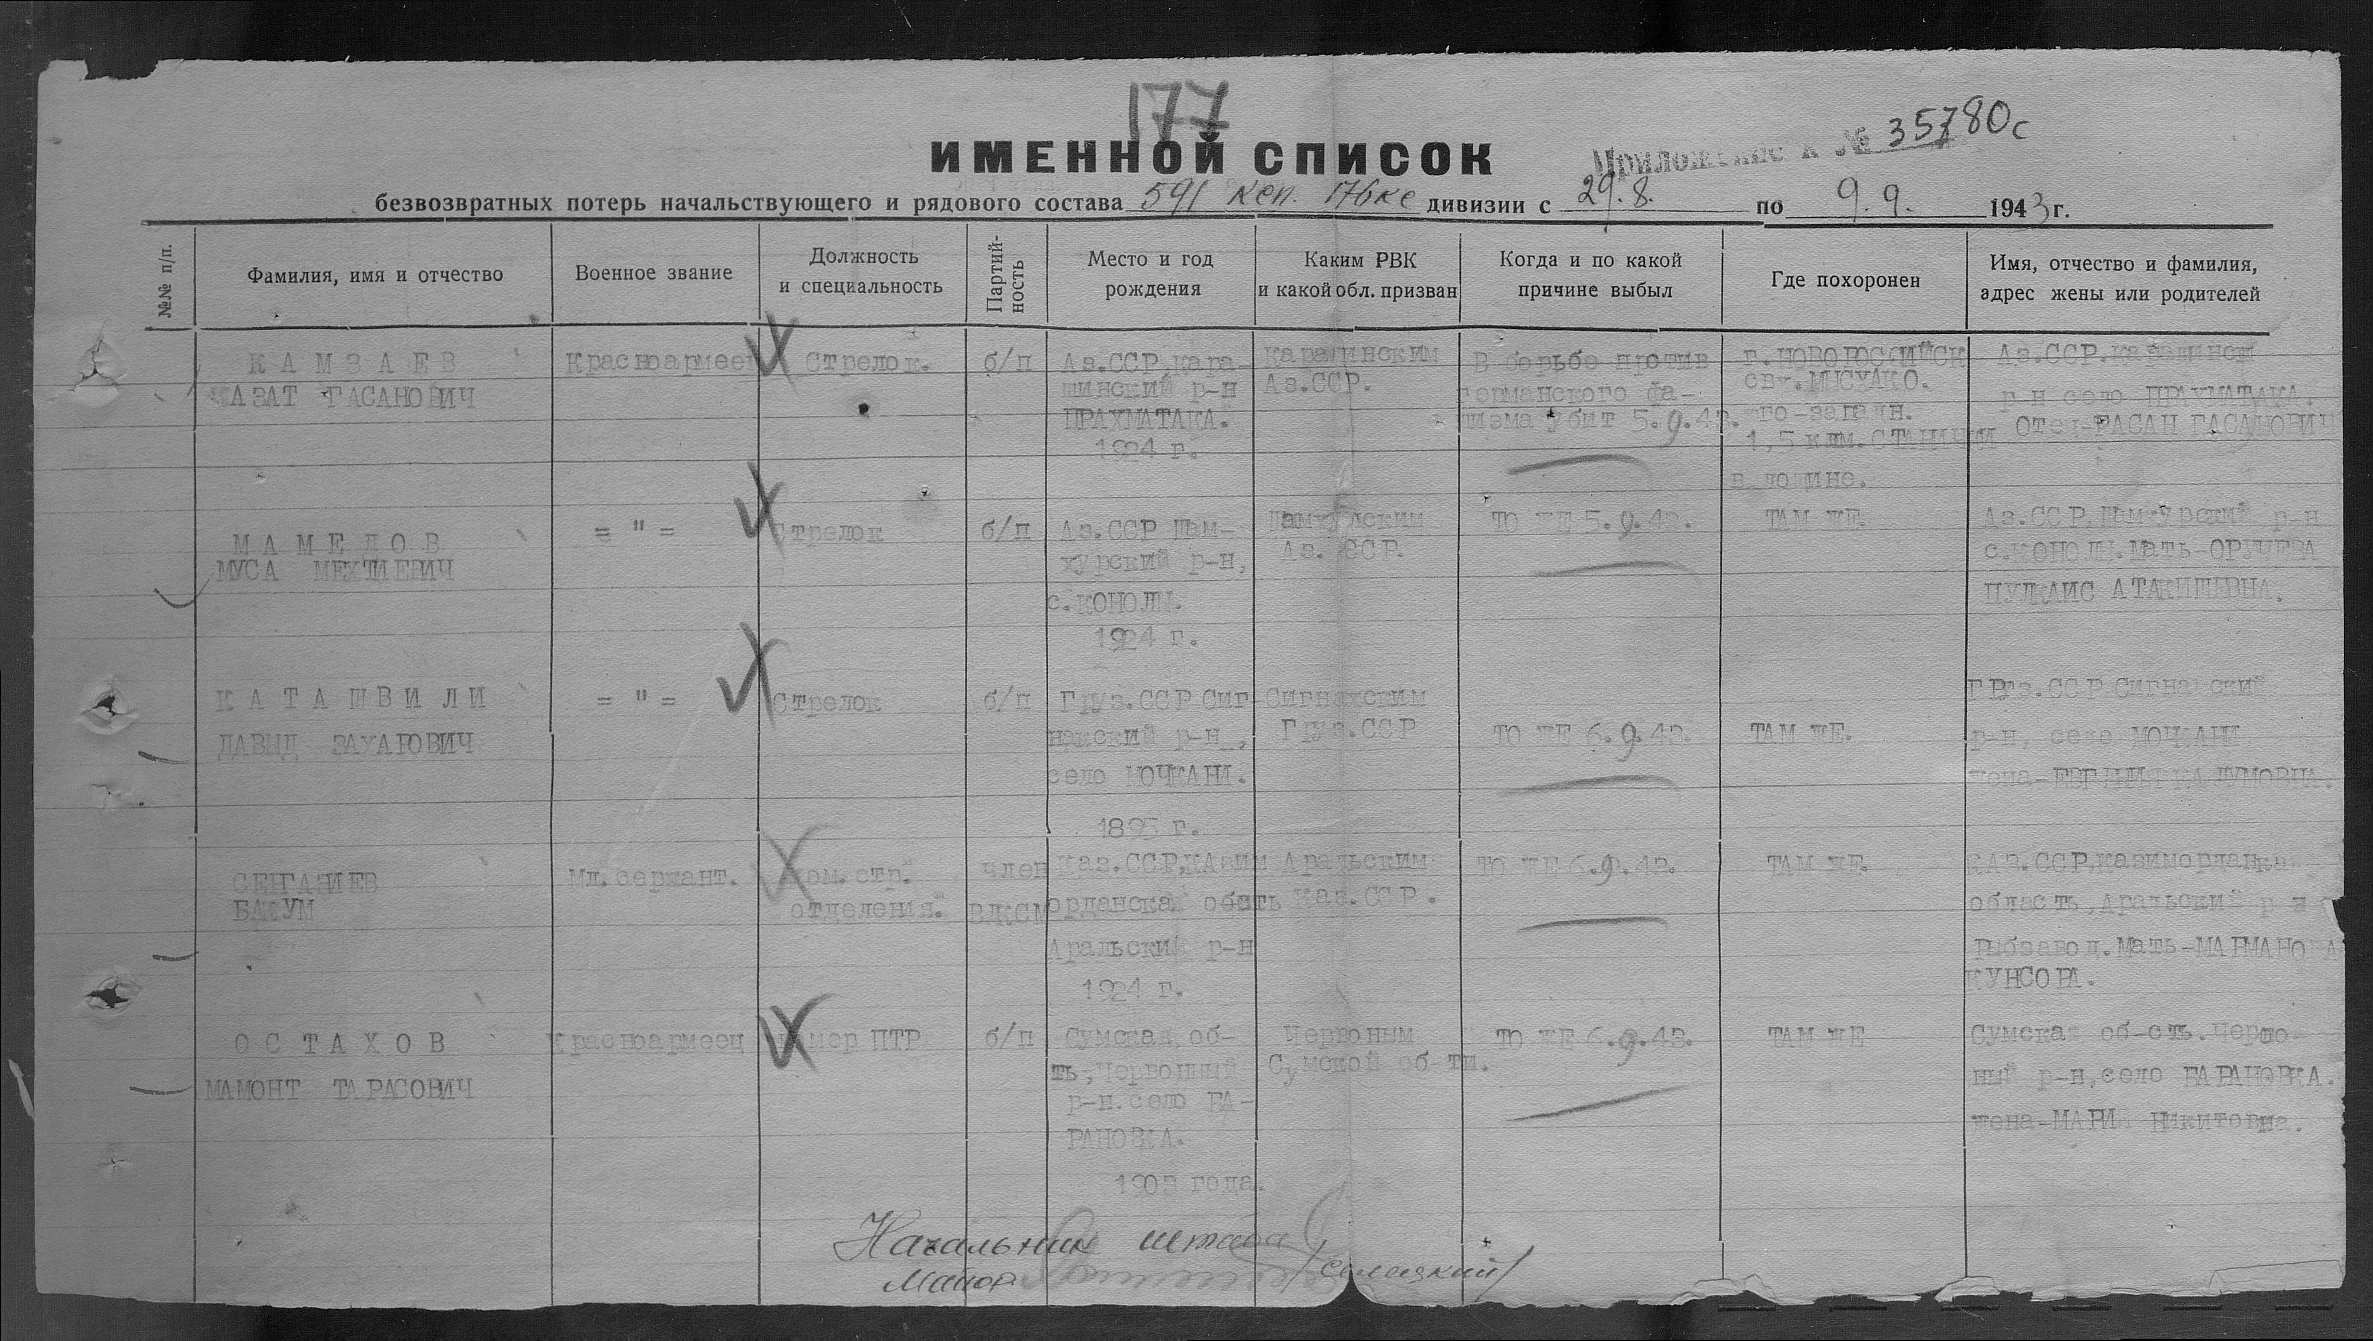 177
ИМЕННОЙ СПИСОК
Приложение к № 35780с
безвозвратных потерь начальствующего и рядового состава 591 дивизии с 29.8. по 9.9. 1943 г.
№№ п/п.
Фамилия, имя и отчество
Военное звание
Должность
и специальность
Партий-
ность
Место и год
рождения
Каким РВК
и какой обл. призван
Когда и по какой
причине выбыл
Где похоронен
Имя, отчество и фамилия,
адрес жены или родителей
КАМЗАЕВ
АЗАТ ГАСАНОВИЧ
Красноармеец
Стрелок.
б/п
Аз.ССР Кара-
шинский р-н
ПРАХМАТАКА.
1924 г.
Аз.ССР.
В борьбе против
германского фа-
шизма убит 5.9.43.
г.НОВОРОССИЙСК
1,5 клм.СТАНИЦИ
в долине.
Аз.ССР.
р-н село ПРАХМАТАКА.
Отец-ГАСАН ГАСАНОВИЧ
МАМЕДОВ
МУСА МЕХТИЕВИЧ
= " =
Стрелок
б/п
Аз.ССР Шам-
хурский р-н,
с.КОНОЛИ.
1924 г.
Аз. ССР.
ТО ЖЕ 5.9.43.
ТАМ ЖЕ.
Аз.ССР, р-н
с.КОНОЛИ. Мать-
КАТАШВИЛИ
ДАВЫД ЗАХАРОВИЧ
= " =
Стрелок
б/п
Груз.ССР Сиг-
нахский р-н,
село МОЧКАНИ.
1895 г.
Сигнахским
Груз.ССР
ТО ЖЕ 6.9.43.
ТАМ ЖЕ.
Груз.ССР Сигнахский
р-н, село МОЧКАНИ
жена-
СЕНГАЗИЕВ
БАКУМ
Мл.сержант.
Ком.стр.
отделения.
член
ВЛКСМ
Каз.ССР,КАзим
орданска область
Аральский р-н
1924 г.
Аральским
Каз.ССР.
ТО ЖЕ 6.9.43.
ТАМ ЖЕ.
КАЗ.ССР,казимордан
область,Аральский р-н
Рыбзавод.Мать-МАРМАНОВА
КУНСОРА.
ОСТАХОВ
МАМОНТ ТАРАСОВИЧ
Красноармеец
номер ПТР
б/п
Сумская об-
ть,Червонный
р-н.село БА-
РАНОВКА.
1903 года.
Червоным
Сумской об-ти.
ТО ЖЕ 6.9.43.
ТАМ ЖЕ
Сумская об-сть.Черво-
ный р-н,село БАРАНОВКА.
жена-МАРИЯ Никитовна.
Начальник штаба
Майор